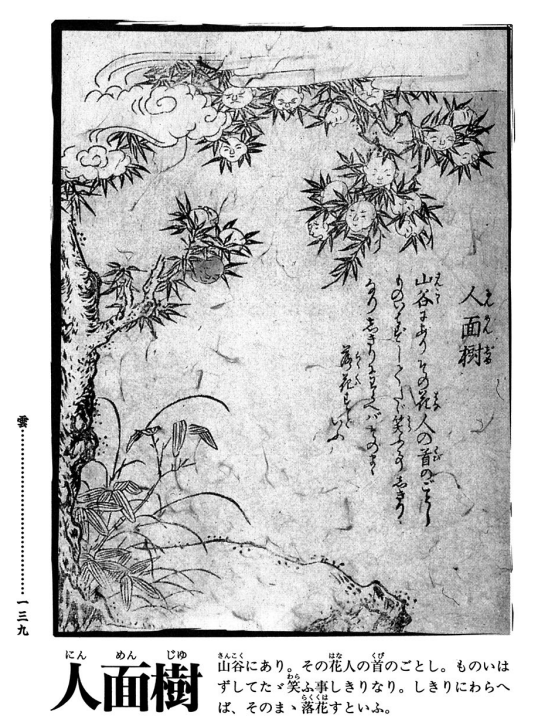 人面樹
山谷にありその花人の首のごとし
ものいはずしてたゞ笑ふ事しきり
なりしきりにわらへばそのまゝ
落花すといふ
雲
一三九
にんめんじゅ
人面樹
さんこく はな くび
山谷にあり。その花人の首のごとし。ものいは
わら
ずしてたゞ笑ふ事しきりなり。しきりにわらへ
らくくは
ば、そのまゝ落花すといふ。